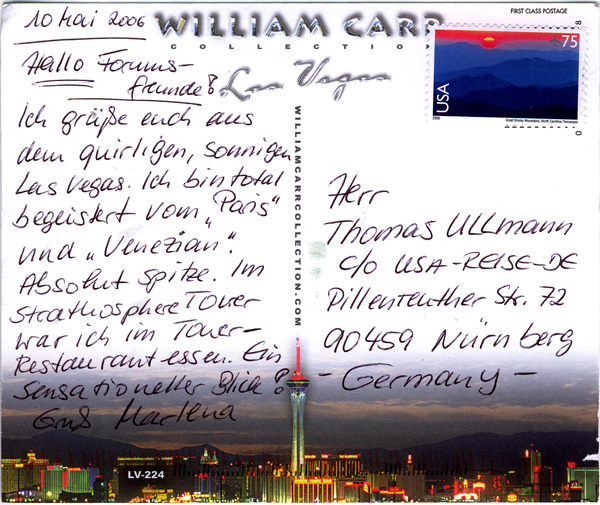 10 Mai 2006
Hallo Forums-
freunde!
Ich grüße euch aus
dem quirligen, sonnigen
Las Vegas. Ich bin total
begeistert vom „Paris"
und „Venezian".
Absolut spitze. Im
Strathosphere Tower
war ich im Tower-
Restaurant essen. Ein
sensationeller Blick!
Gruß Marlena
WILLIAM CARR
COLLECTION
Las Vegas
WILLIAMCARRCOLLECTION.COM
FIRST CLASS POSTAGE
75
USA
2006
Great Smoky Mountains, North Carolina/Tennessee
Herr
Thomas Ullmann
c/o USA-REISE-DE
Pillenreuther Str. 72
90459 Nürnberg
- Germany -
LV-224